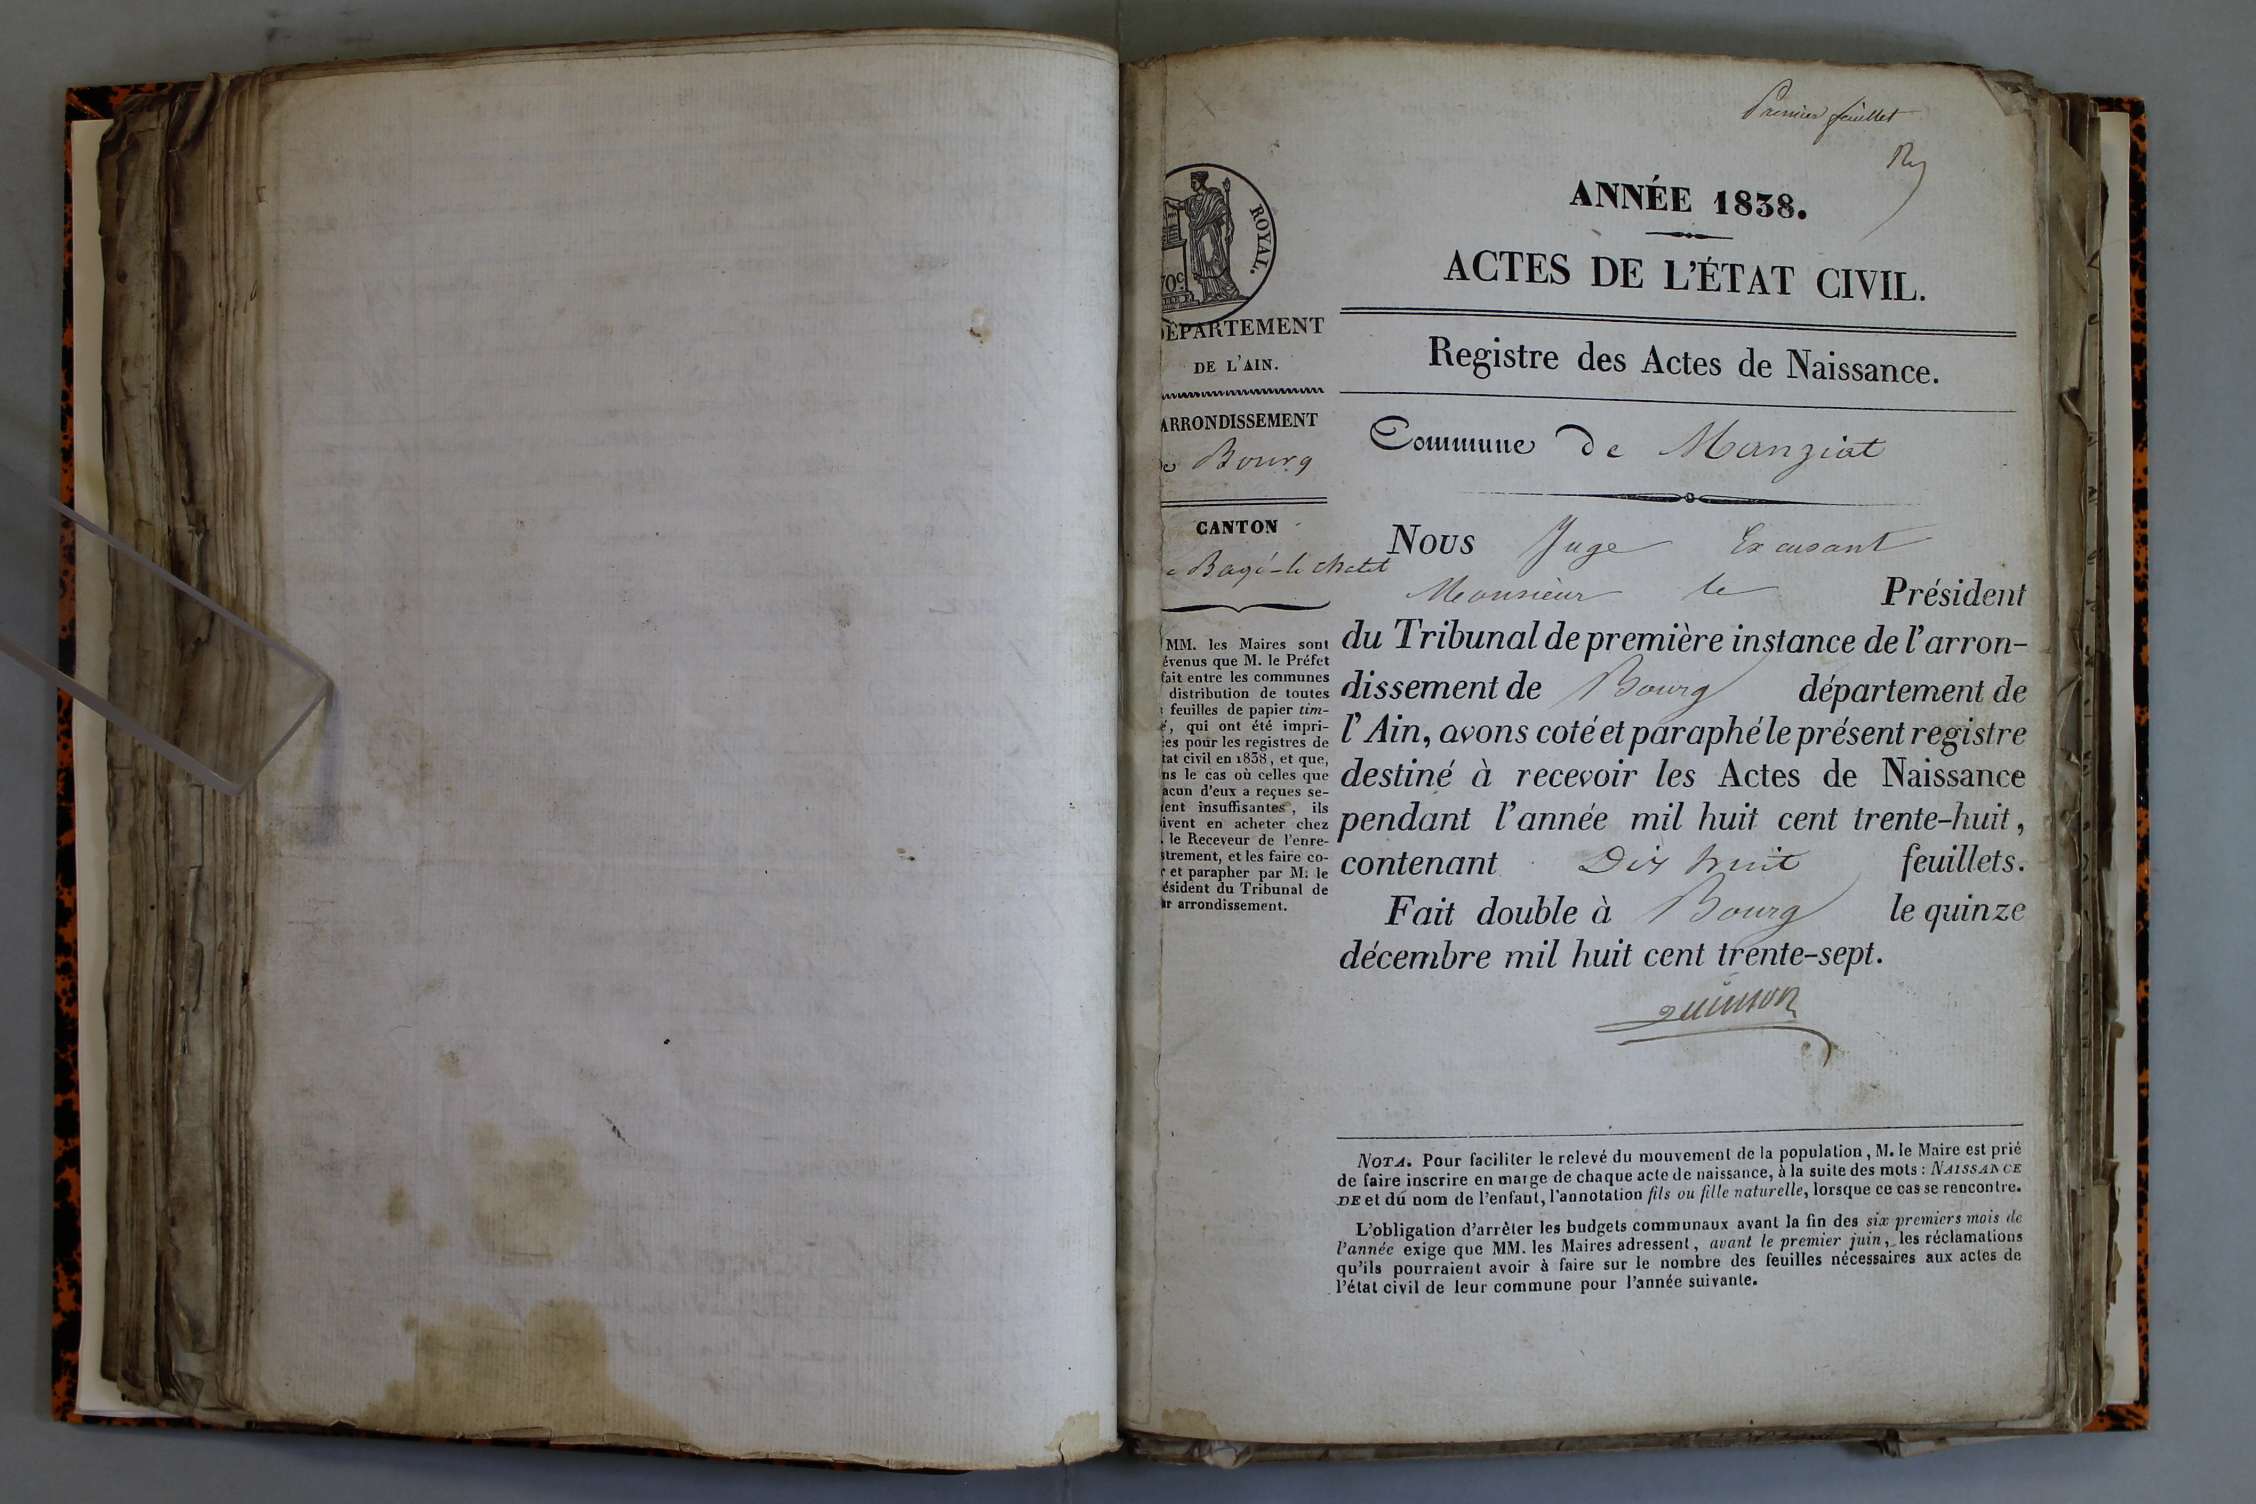 Premier feuillet
ANNÉE 1838.
ACTES DE L'ÉTAT CIVIL.
ROYAL.
70c
DÉPARTEMENT
DE L'AIN.
ARRONDISSEMENT
de Bourg
CANTON
e Bagé-le chatel
MM. les Maires sont
évenus que M. le Préfet
fait entre les communes
distribution de toutes
s feuilles de papier tim-
é, qui ont été impri-
ées pour les registres de
tat civil en 1838, et que,
ns le cas où celles que
acun d'eux a reçues se-
ient insuffisantes, ils
ivent en acheter chez
. le Receveur de l'enre-
strement, et les faire co-
r et parapher par M. le
ésident du Tribunal de
ur arrondissement.
Registre des Actes de Naissance.
Commune de Manziat
Nous Juge Excusant
Monsieur le Président
du Tribunal de première instance de l'arron-
dissement de Bourg département de
l'Ain, avons coté et paraphé le présent registre
destiné à recevoir les Actes de Naissance
pendant l'année mil huit cent trente-huit,
contenant Dix huit feuillets.
Fait double à Bourg le quinze
décembre mil huit cent trente-sept.
quinson
NOTA. Pour faciliter le relevé du mouvement de la population, M. le Maire est prié
de faire inscrire en marge de chaque acte de naissance, à la suite des mots : NAISSANCE
DE et du nom de l'enfant, l'annotation fils ou fille naturelle, lorsque ce cas se rencontre.
L'obligation d'arrêter les budgets communaux avant la fin des six premiers mois de
l'année exige que MM. les Maires adressent, avant le premier juin, les réclamations
qu'ils pourraient avoir à faire sur le nombre des feuilles nécessaires aux actes de
l'état civil de leur commune pour l'année suivante.